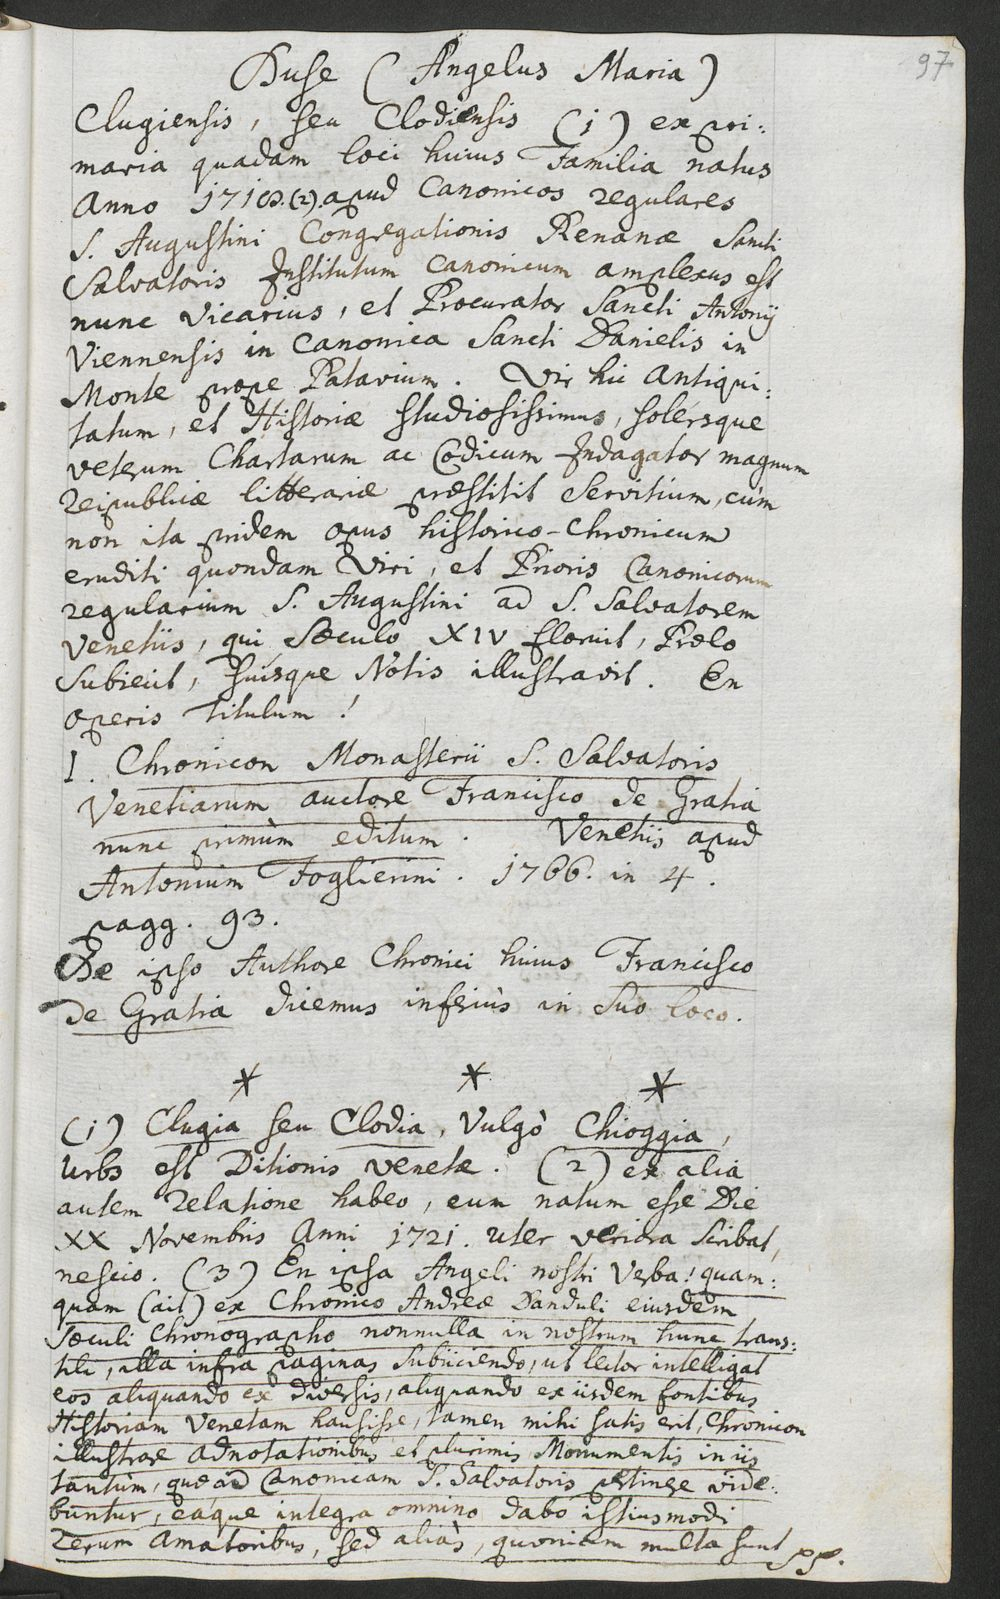 97
Duse (Angelus Maria)
Clugiensis, seu Clodiensis (1) ex pri:
maria quadam loci huius Familia natus
Anno 1718.(2). apud Canonicos regulares
S. Augustini Congregationis Renanæ Sancti
Salvatoris Institutum Canonicum amplexus est
nunc Vicarius, et Procurator Sancti Antonij
Viennensis in Canonica Sancti Danielis in
Monte prope Patavium. Vir hic Antiqui:
tatum, et Historiæ studiosissimus, solersque
veterum Chartarum ac Codicum Indagator magnum
Reipublicæ litterariæ præstitit Servitium, cùm
non ita pridem opus historico-Chronicum
eruditi quondam Viri, et Prioris Canonicorum
regularium S. Augustini ad S. Salvatorem
Venetiis, qui Sæculo XIV floruit, Prælo
subiecit, suisque Notis illustravit. En
operis Titulum!
I. Chronicon Monasterii S. Salvatoris
Venetiarum auctore Francisco de Gratia
nunc primùm editum. Venetiis apud
Antonium Foglierini. 1766. in 4.
pagg. 93.
De ipso Authore Chronici huius Francisco
de Gratia dicemus inferiùs in suo loco.
* * *
(1) Clugia seu Clodia, Vulgò Chioggia,
Urbs est Ditionis Venetæ. (2) ex alia
autem Relatione habeo, eum natum esse Die
XX Novembris Anni 1721. uter veriora scribat,
nescio. (3) En ipsa Angeli nostri Verba! quam:
quam (ait) ex Chronico Andreæ Danduli eiusdem
sæculi Chronographo nonnulla in nostrum hunc trans:
tuli, illa infra paginas subiiciendo, ut lector intelligat
eos aliquando ex diversis, aliquando ex iisdem fontibus
Historiam Venetam hausisse, tamen mihi satis erit, Chronicon
illustrare adnotationibus et plurimis Monumentis in iis
tantùm, quæ ad Canonicam S. Salvatoris pertinere vide:
buntur, eaque integra omnino dabo istiusmodi
rerum Amatoribus, sed aliàs, quoniam multa sunt pp.